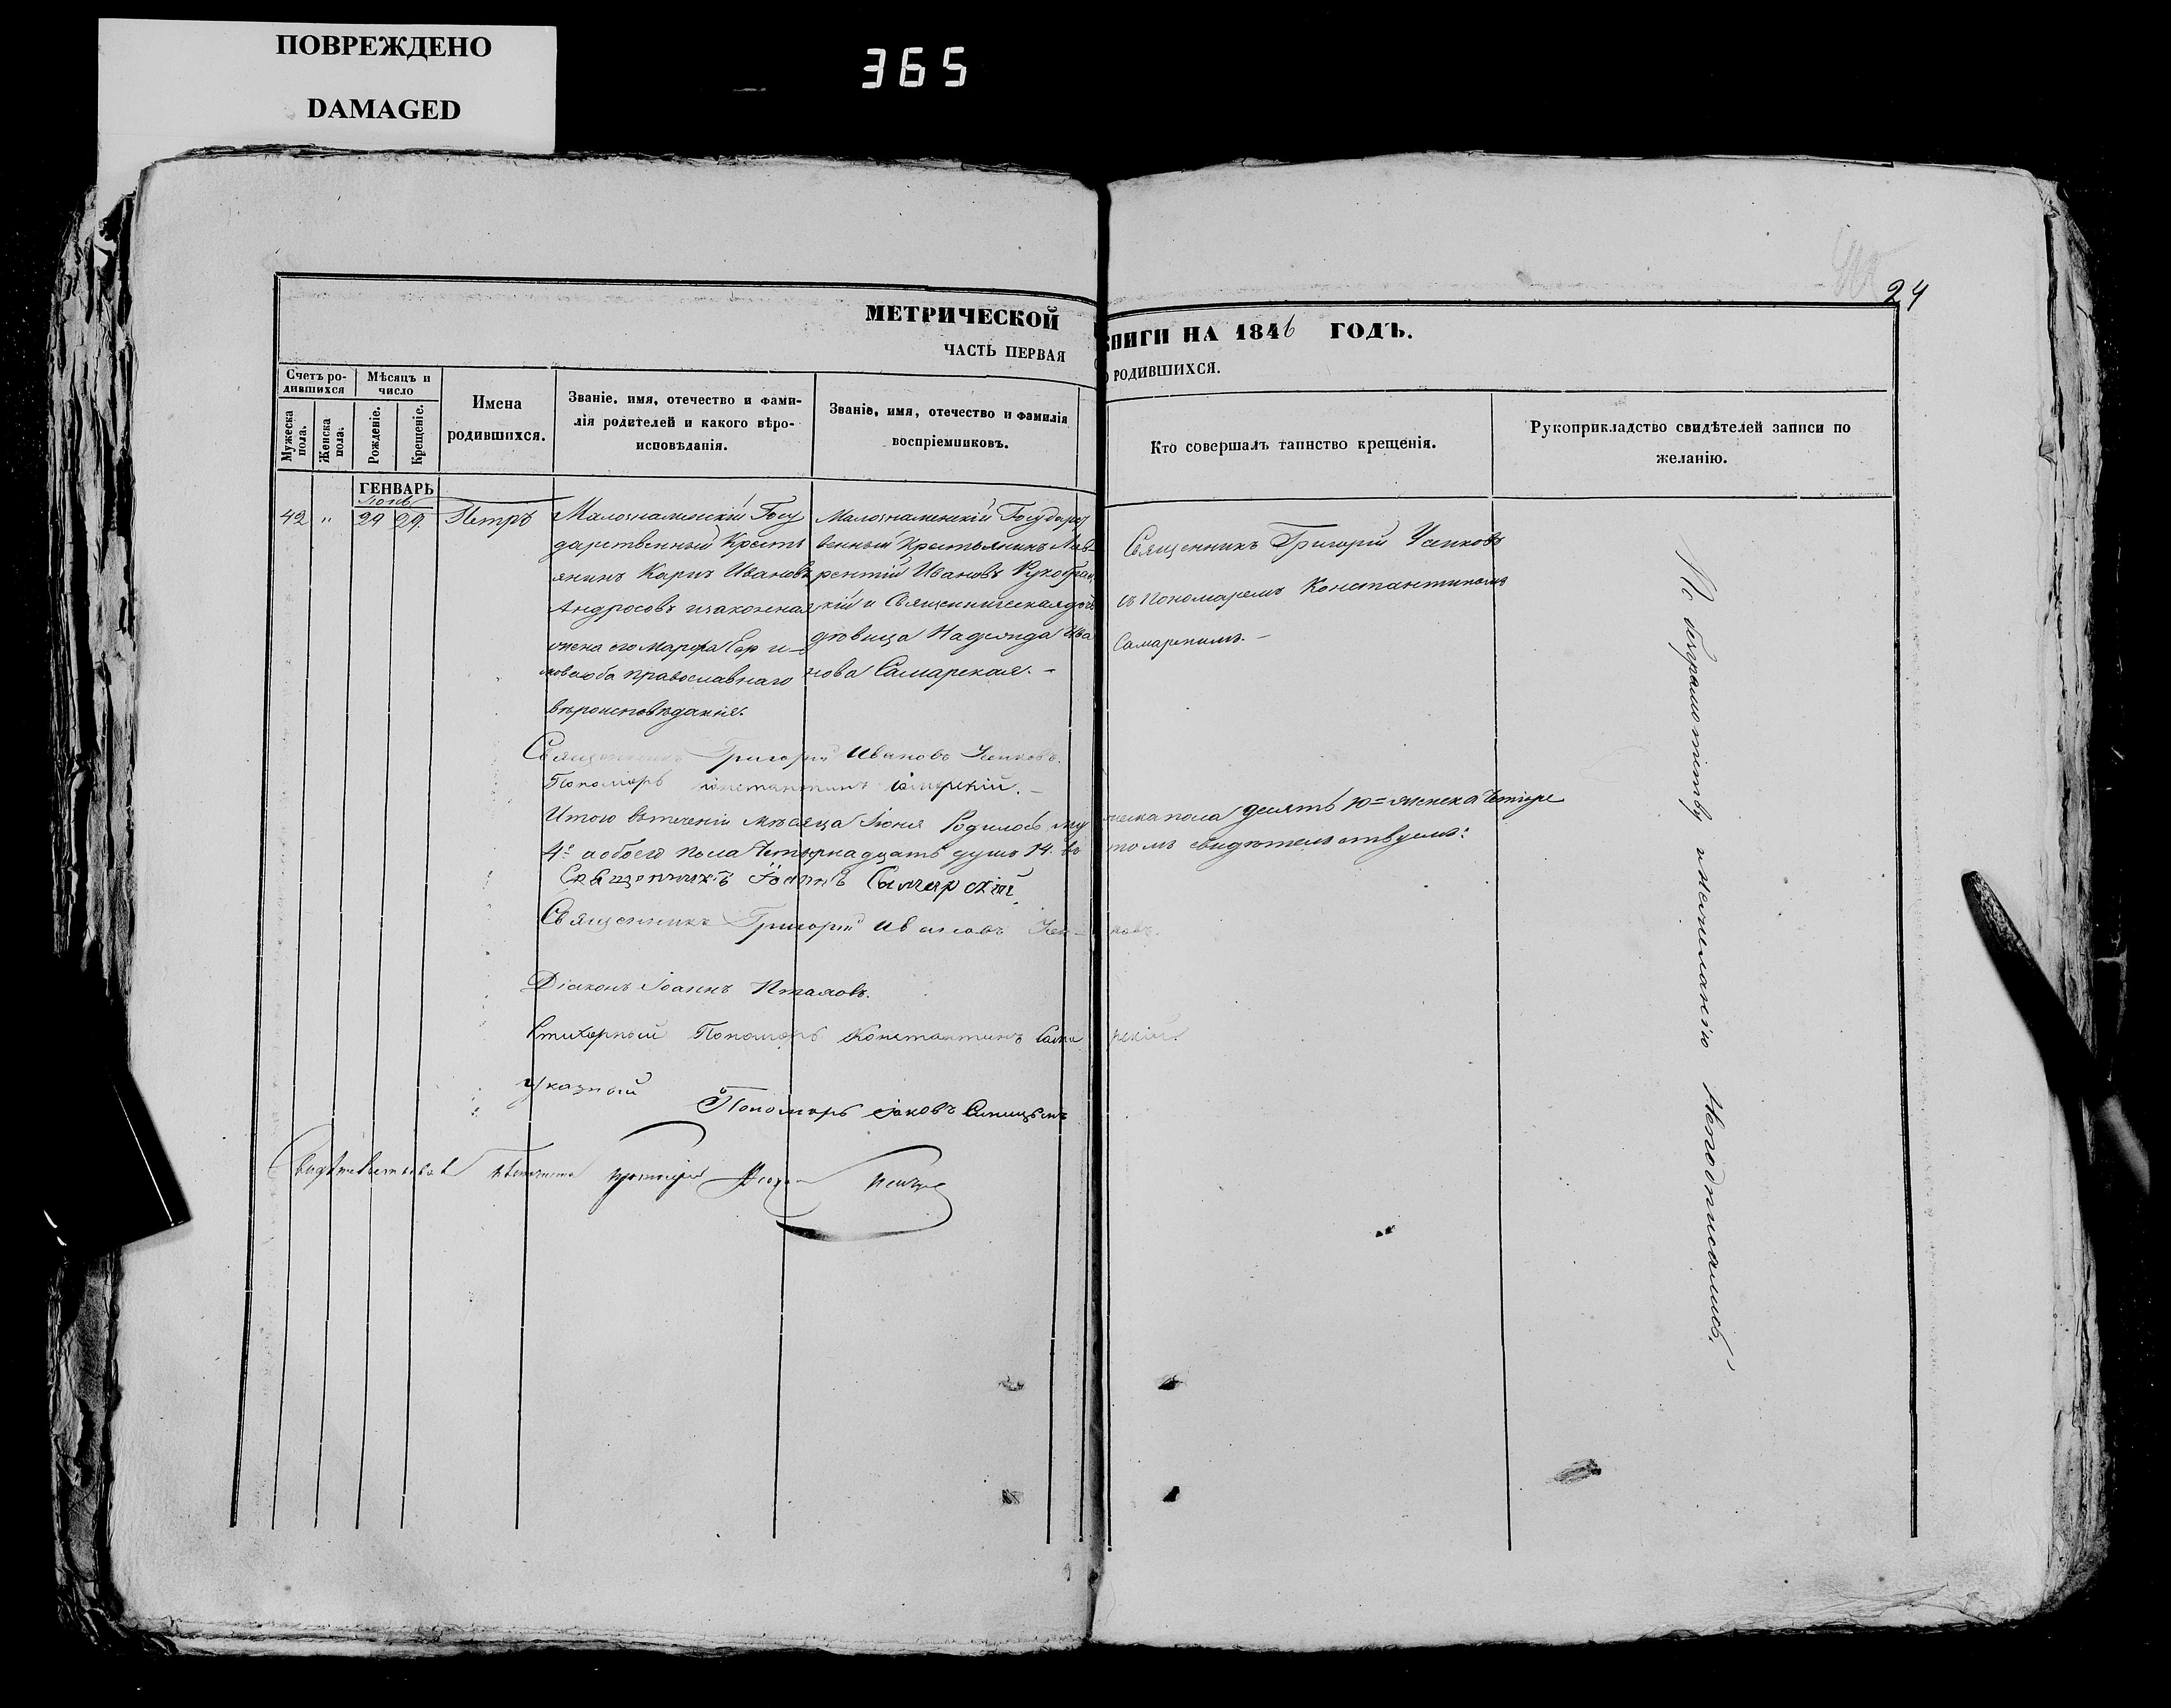 ПОВРЕЖДЕНО
DAMAGED
365
24
МЕТРИЧЕСКОЙ КНИГИ НА 1846 ГОДЪ.
ЧАСТЬ ПЕРВАЯ О РОДИВШИХСЯ.
Счетъ родившихся
Мѣсяцъ и число
Мужеска пола.
Женска пола.
Рожденіе.
Крещеніе.
Имена родившихся.
Званіе, имя, отечество и фами-
лія родителей и какого вѣро-
исповѣданія.
Званіе, имя, отечество и фамилія
воспріемниковъ.
Кто совершалъ таинство крещенія.
Рукоприкладство свидѣтелей записи по
желанію.
ГЕНВАРЬ
42 " 29 29. Петръ
Малознаменскій Госу
дарственный Кресть
янинъ Карпъ Ивановъ
Андросовъ и законная
жена его Марфа
нова оба православнаго
вѣроисповѣданія.
Малознаменскій Государст
венный Крестьянинъ Лав-
рентій Ивановъ
и Священническая дочь
дѣвица Надежда Ива
нова Самарская. -
Священникъ Григорій Усиковъ
съ пономаремъ Константиномъ
Самарскимъ. -
По безграмотству и неиманію неподписались.
Священникъ Григорій Ивановъ Усиковъ.
Пономарь Константинъ Самарскій. -
Итого въ теченіи мѣсяца Іюня Родилось мужеска пола десять 10 = женска Четыре
4 = а обоего пола Четырнадцать душъ 14. въ томъ свидѣтельствуемъ:
Священникъ Іоаннъ Самарскій
Священникъ Григорій Ивановъ Усиковъ.
Діаконъ Іоаннъ
Стихарный Пономарь Константинъ Самарскій.
Указный
Пономарь Іаковъ Синицынъ
Свидѣтельствовалъ протоіерей